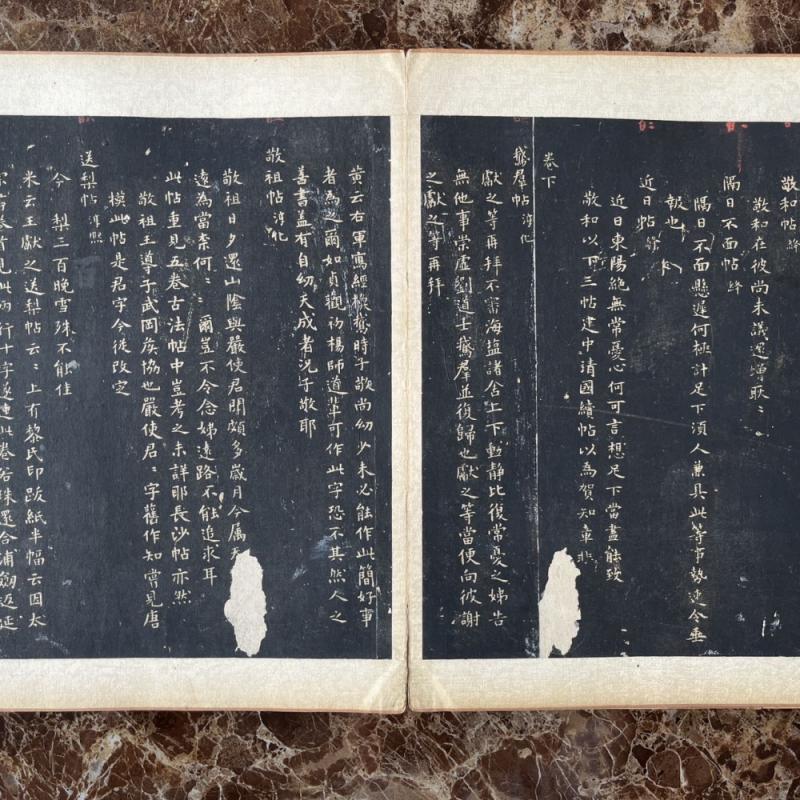 敬和帖 絳
敬和在彼尚未議還增耿〻。
隔日不面帖 絳
隔日不面懸遲何極計足下須人兼具此等事勢速令垂
報也
近日帖 絳
近日東陽絕無常憂心何可言想足下當盡能致
敬和以下三帖建中靖國續帖以為賀知章非
卷下
鵞羣帖 淳化
獻之等再拜不審海鹽諸舍上下動靜比復常憂之姊告
無他事崇虛劉道士鵞羣並復歸也獻之等當便向彼謝
之獻之等再拜
黃云右軍寫經換鵞時子敬尚幼少未必能作此簡好事
者為之爾如貞觀初楊師道輩可作此字恐不其然人之
善書盖有自幼天成者況子敬耶
敬祖帖 淳化
敬祖日夕還山陰與嚴使君聞頗多歲月今屬
遠為當柰何〻爾豈不令念姊遠路不能追求耳
此帖重見五卷古法帖中豈考之未詳耶長沙帖亦然
敬祖王導子武岡矦協也嚴使君〻字舊作知嘗見唐
模此帖是君字今從改定
送梨帖 淳熙
今 梨三百晚雪殊不能佳
米云王獻之送梨帖云〻上有黎氏印跋紙半幅云因太
卷首見此兩行十字遂連此卷若珠還合浦劒返延